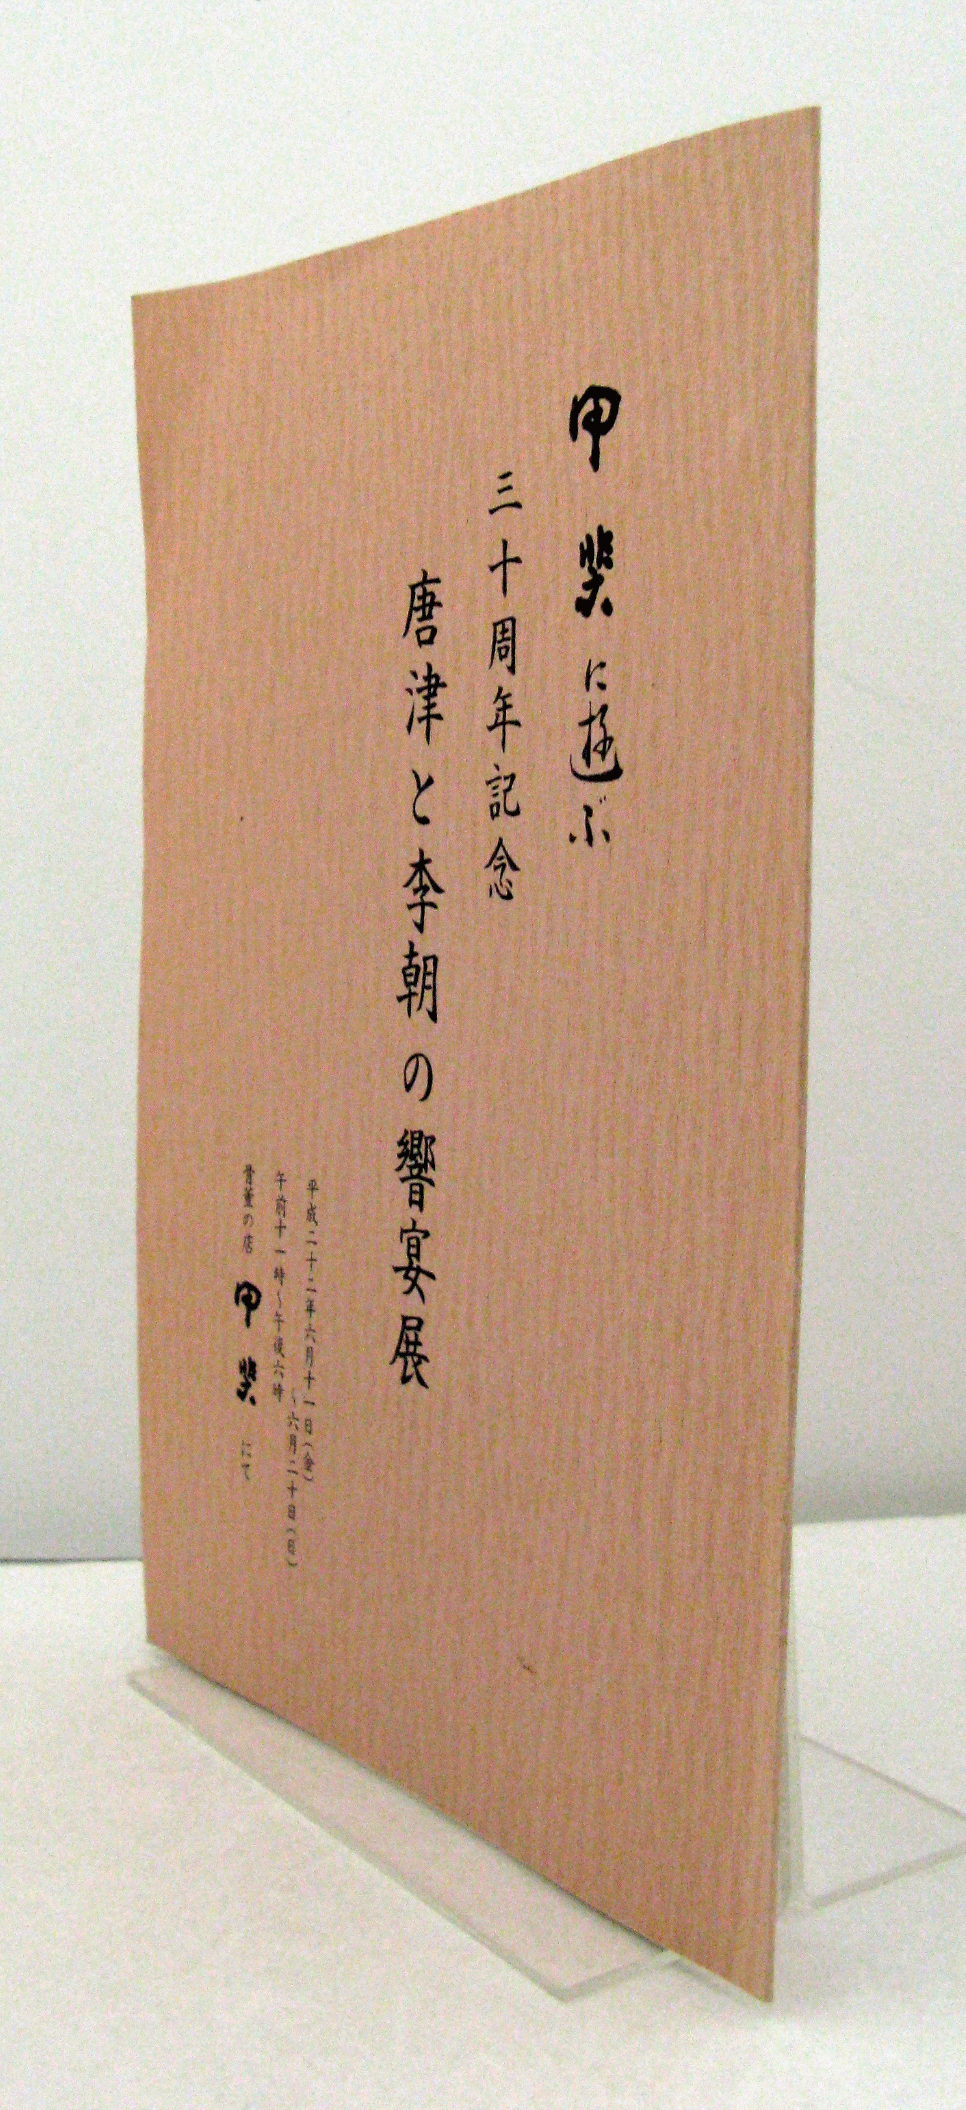 甲斐に遊ぶ
三十周年記念
唐津と李朝の響宴展
平成二十二年六月十一日(金)
~六月二十日(日)
午前十一時~午後六時
骨董の店 甲斐 にて